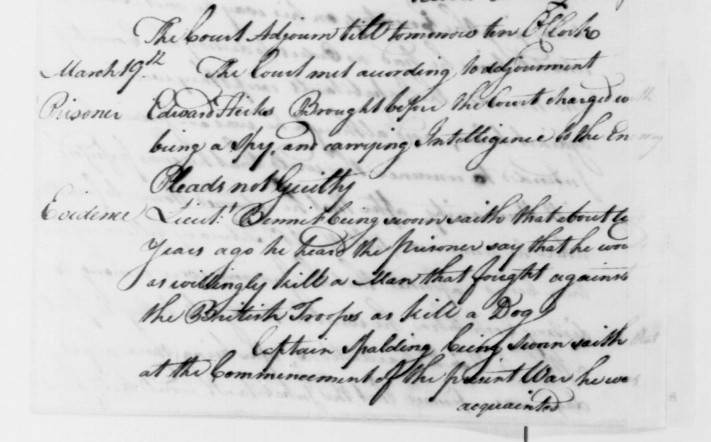 The Court Adjourn till tomorrow ten O'Clock
March 19th. The Court met acording to adjournment
Prisoner Edward Hicks Brought before the Court charged
being a Spy, and carrying Intelligence to the
Pleads not Guilty
Evidence Lieut. Bennit being sworn saith that about
Years ago he heard the prisoner say that he
as willingly kill a Man that fought against
the British Troops as kill a Dog
Captain Spalding being sworn saith
at the Commencement of the present War he
acquainted